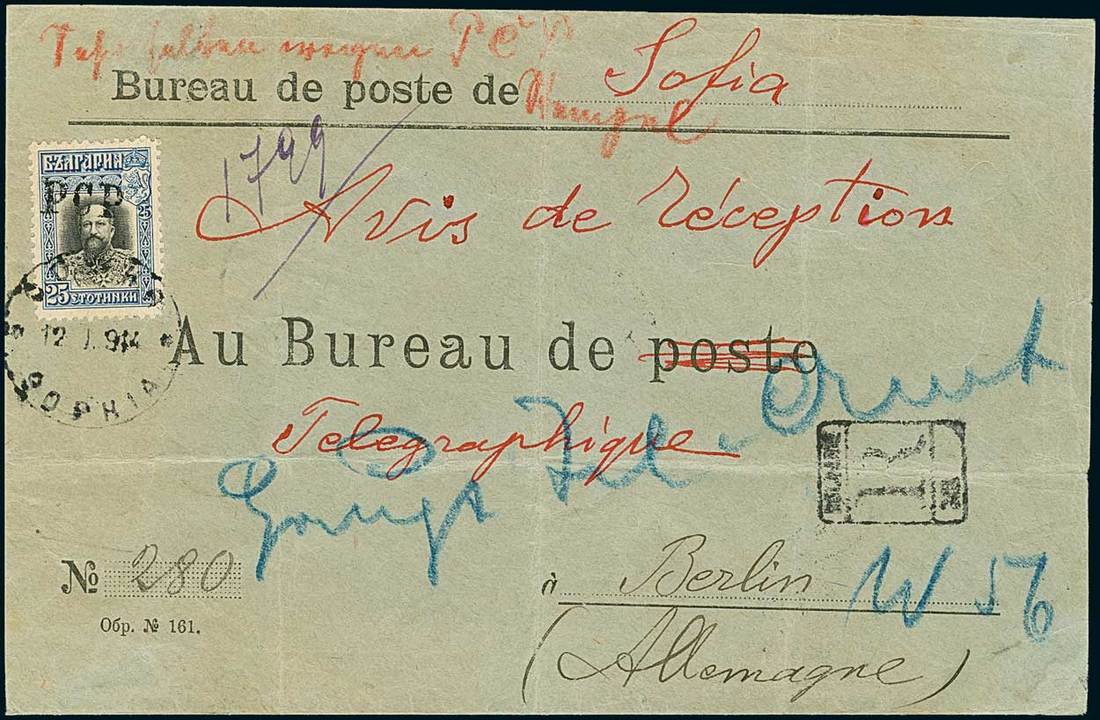 PCP
Bureau de poste de Sofia
1799
БЪЛГАРИЯ
PCP
25
25 СТОТИНКИ
Avis de réception
12 I 914
SOPHIA
Au Bureau de poste
Telegraphique
R
W 56
№ 280
à Berlin
Обр. № 161.
(Allemagne)